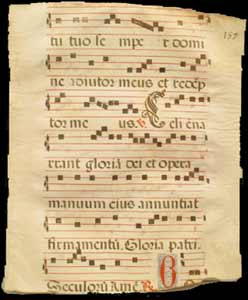 157
tu tuo se mpe r domi
ne adiutor meus et redēp
tor me us. Celi ēna
rrant gloriā dei et opera
manuum eius annuntiat
firmamentū. Gloria patri.
Seculorū Amē. R O